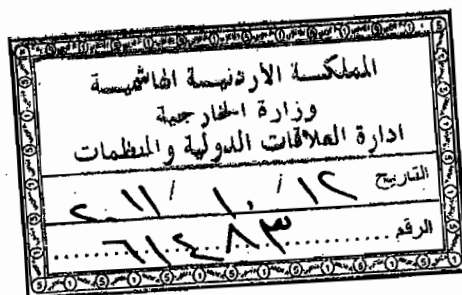 المملكة الأردنية الهاشمية
وزارة الخارجية
ادارة العلاقات الدولية والمنظمات
التاريخ ١٢ / ١٠ / ٢٠١١
الرقم ٦١٤٨٣